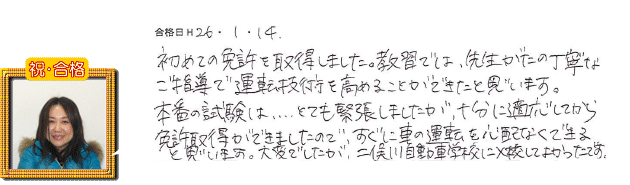 合格日 H26.1.14.
祝・合格
初めての免許を取得しました。教習では、先生がたの丁寧な
ご指導で運転技術を高めることができたと思います。
本番の試験は....とても緊張しましたが、十分に適応してから
免許取得ができましたので、すぐに車の運転を心配なくできる
と思います。大変でしたが、二俣川自動車学校に入校してよかったです。